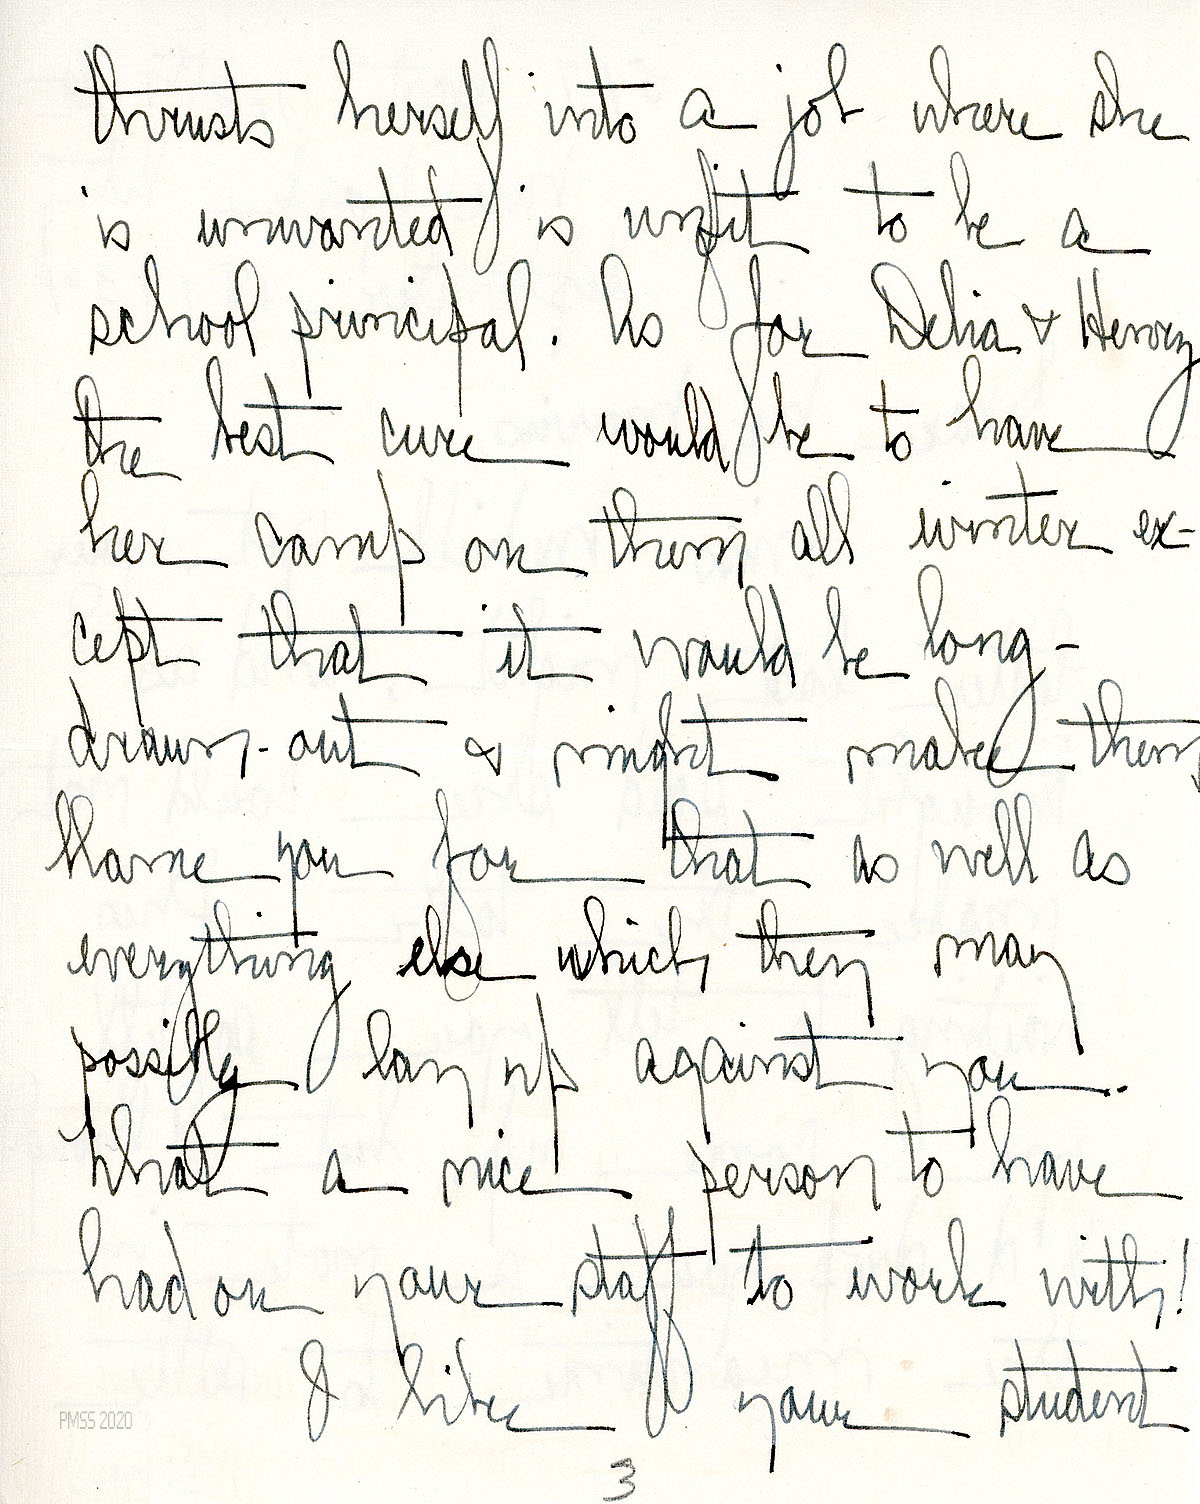 thrusts herself into a job where she
is unwanted is unfit to be a
school principal. As for Delia & Henry
the best cure would be to have
her camp on them all winter ex-
cept that it would be long-
drawn-out & might make them
blame you for that as well as
everything else which they may
possibly lay up against you.
What a nice person to have
had on your staff to work with!
I like your student
PMSS 2020
3